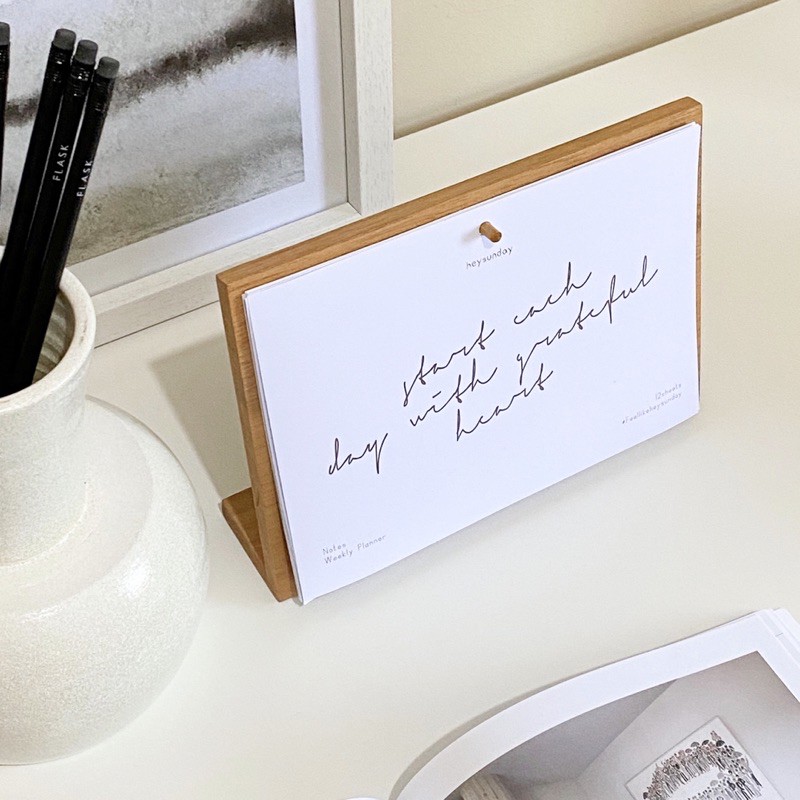 FLASK
FLASK
heysunday
start each
day with grateful
heart
12sheets
#feellikeheysunday
Notes
Weekly Planner